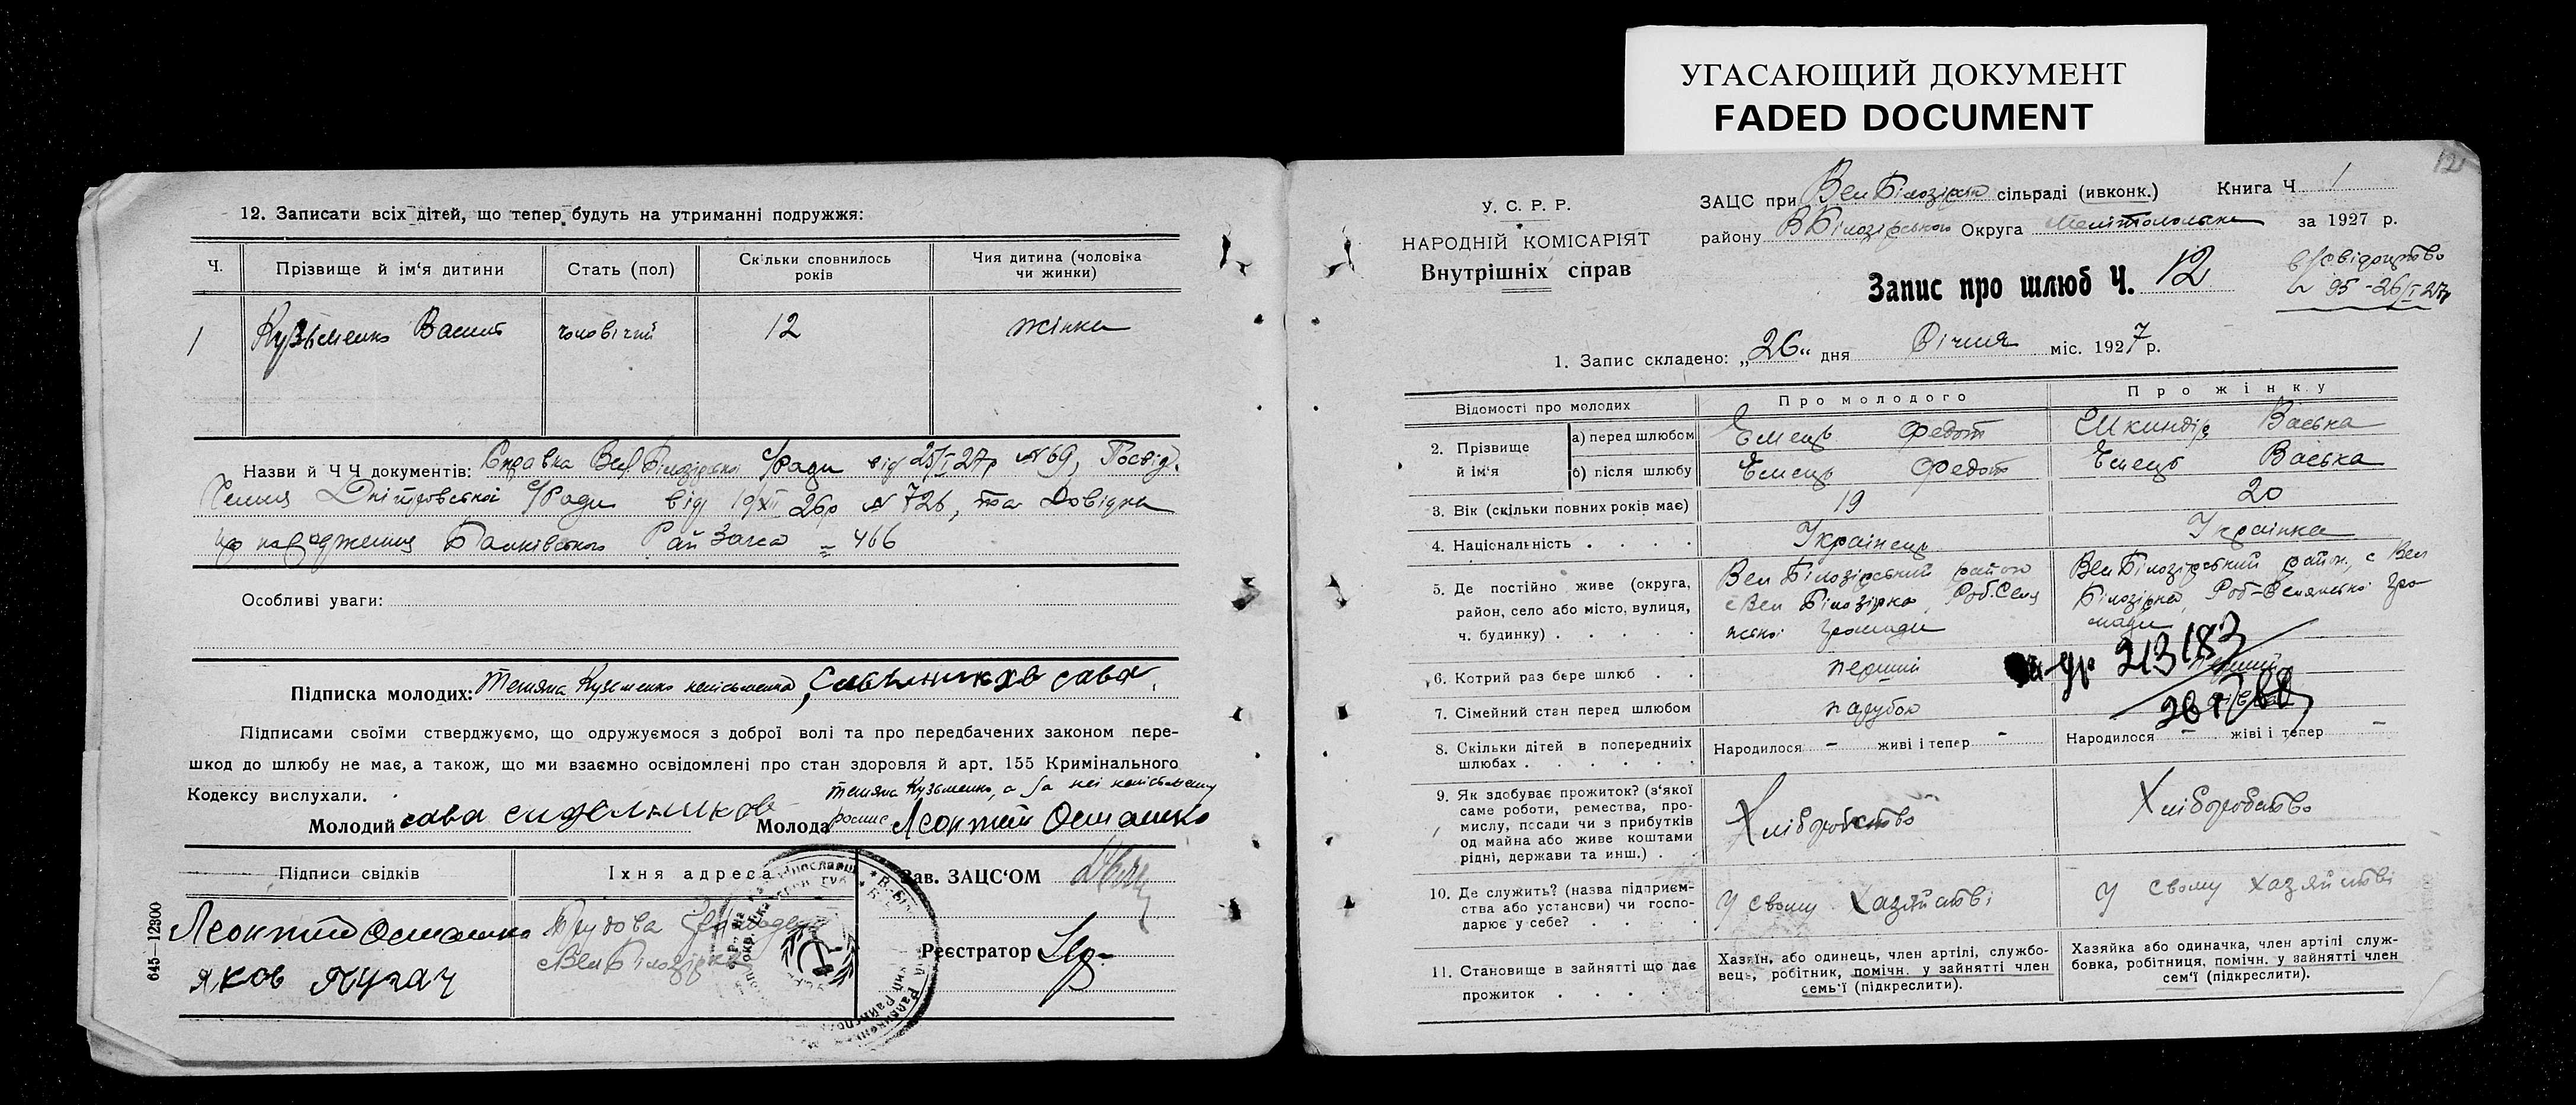 УГАСАЮЩИЙ ДОКУМЕНТ
FADED DOCUMENT
12. Записати всіх дітей, що тепер будуть на утриманні подружжя:
Ч.
Прізвище й ім‘я дитини
Стать (пол)
Скільки сповнилось років
Чия дитина (чоловіка чи жинки)
1
Кузьменко Васил
чоловічий
12
жінки
Назви й Ч Ч документів: Справка Вел. Білозірської с/ради від 25/I 27р № 69, Посвід.
Дніпровської с/Ради від 19/XII 26р № 726, та Довідка
про народження Балківського Рай Загса = 466
Особливі уваги:
Підписка молодих: Тетяна Кузьменко неписьменна, сава
Підписами своїми стверджуємо, що одружуємося з доброї волі та про передбачених законом пере-
шкод до шлюбу не має, а також, що ми взаємно освідомлені про стан здоровля й арт. 155 Кримінального
Кодексу вислухали.
Тетяна Кузьменко, а за неї неписьменну
Молодий сава сидельников Молода розпис Леонтий Осташко
Підписи свідків
Їхня адреса
Зав. ЗАЦС‘ОМ
Леонтий Осташко
Трудова Громада
Яков Пугач
с Вел Білозірка
Реєстратор
645—12300
12
У. С. Р. Р.
НАРОДНІЙ КОМІСАРІЯТ
Внутрішніх справ
ЗАЦС при Вел Білозірськ сільраді (ивконк.) Книга Ч 1
району В Білозірського Округа Мелітопольськ за 1927 р.
Запис про шлюб Ч. 12
в/свідоцтво
№ 95 - 26/I 27р
1. Запис складено: „26“ дня Січня міс. 1927 р.
Відомості про молодих
Про молодого
Про жінку
2. Прізвище й ім‘я
а) перед шлюбом
Ємець Федот
Шкиндір Васька
б) після шлюбу
Ємець Федот
Ємець Васька
3. Вік (скільки повних років має)
19
20
4. Національність . . . .
Українець
Українка
5. Де постійно живе (округа,
район, село або місто, вулиця,
ч. будинку) . . . . .
Вел Білозірський район
с Вел Білозірка, Роб. Селя
нської громади
Вел Білозірський район, с Вел
Білозірка, Роб-Селянської гро
мади
6. Котрий раз бере шлюб . .
перший
перший
213183
7. Сімейний стан перед шлюбом
парубок
8. Скільки дітей в попередніх
шлюбах . . . . . .
Народилося - живі і тепер -
Народилося - жіві і тепер -
9. Як здобуває прожиток? (з‘якої
саме роботи, ремества, про-
мислу, посади чи з прибутків
од майна або живе коштами
рідні, держави та инш.) . .
Хліборобство
Хліборобство
10. Де служить? (назва підприєм-
ства або установи) чи госпо-
дарює у себе? . . .
У свому хазяйстві
У свому хазяйстві
11. Становище в зайнятті що дає
прожиток . . . .
Хазяїн, або одинець, член артілі, службо-
вець, робітник, помічн. у зайнятті член
семь‘ї (підкреслити).
Хазяйка або одиначка, член артілі служ-
бовка, робітниця, помічн. у зайнятті член
сем‘ї (підкреслити).